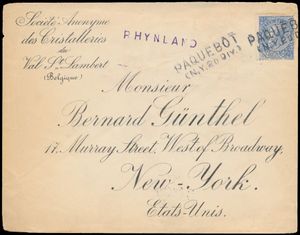 Société Anonyme
des Cristalleries
du
Val St Lambert
(Belgique)
RHYNLAND
PAQUEBOT
(N.Y. 2D DIV.)
PAQUEBOT
Monsieur
Bernard Günthel
17. Murray Street, West of Broadway,
New-York.
Etats-Unis.